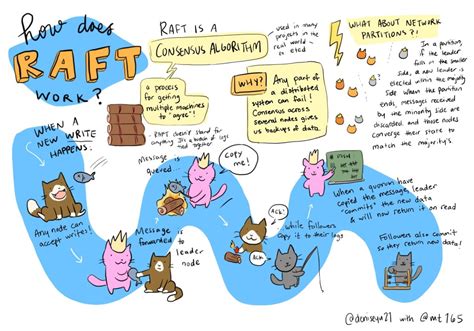 how does
RAFT
WORK?
RAFT IS A
CONSENSUS ALGORITHM
a process
for getting
multiple machines
to "agree"!
used in many
projects in the
real world
WHY?
Any part of
a distributed
system can fail!
Consensus across
several nodes give
us backups of data.
WHAT ABOUT NETWORK
PARTITIONS?!
In a partition,
if the leader
falls in the smaller
side, a new leader is
elected within the majority
side. When the partition
ends, messages received
by the minority side are
discarded and those nodes
converge their state to
match the majority's
RAFT doesn't stand for
anything. It's a bunch of logs
tied together!
WHEN A
NEW WRITE
HAPPENS.
Any node can
accept writes!
Message
forwarded to
leader
node
Message is
queued...
Copy me!
Ack!
Ack!
While followers
copy it to their logs
When a quorum have
copied the message leader
"commits" the new data
& will now return it on read
Followers also commit
so they return new data!
@deniseyu21 with @mt165